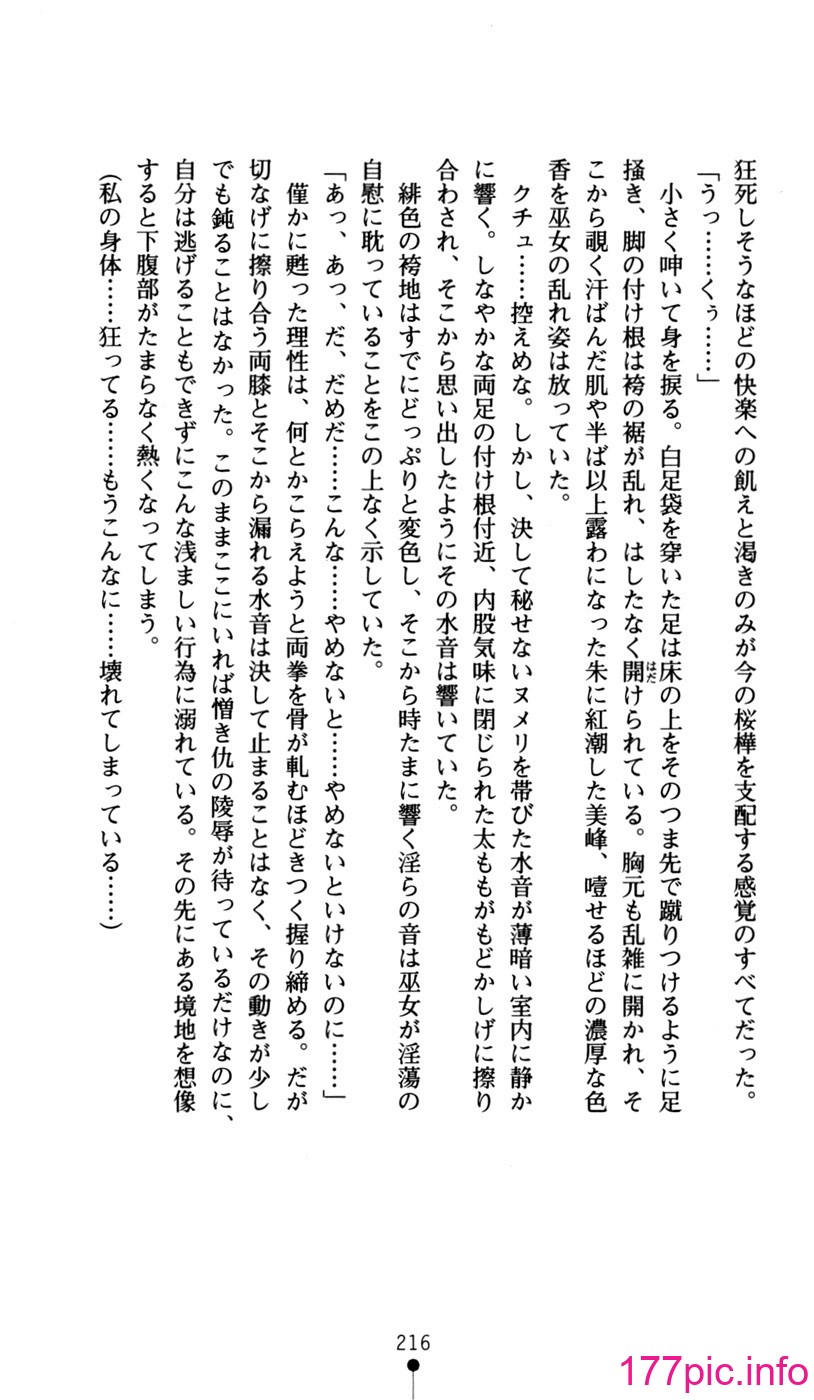 狂死しそうなほどの快楽への飢えと渇きのみが今の桜樺を支配する感覚のすべてだった。
「うっ……くぅ……」
小さく呻いて身を捩る。白足袋を穿いた足は床の上をそのつま先で蹴りつけるように足
掻き、脚の付け根は袴の裾が乱れ、はしたなく開けられている。胸元も乱雑に開かれ、そ
はだ
こから覗く汗ばんだ肌や半ば以上露わになった朱に紅潮した美峰、噎せるほどの濃厚な色
香を巫女の乱れ姿は放っていた。
クチュ……控えめな。しかし、決して秘せないヌメリを帯びた水音が薄暗い室内に静か
に響く。しなやかな両足の付け根付近、内股気味に閉じられた太ももがもどかしげに擦り
合わされ、そこから思い出したようにその水音は響いていた。
緋色の袴地はすでにどっぷりと変色し、そこから時たまに響く淫らの音は巫女が淫蕩の
自慰に耽っていることをこの上なく示していた。
「あっ、あっ、だ、だめだ……こんな……やめないと……やめないといけないのに……」
僅かに甦った理性は、何とかこらえようと両拳を骨が軋むほどきつく握り締める。だが
切なげに擦り合う両膝とそこから漏れる水音は決して止まることはなく、その動きが少し
でも鈍ることはなかった。このままここにいれば憎き仇の陵辱が待っているだけなのに、
自分は逃げることもできずにこんな浅ましい行為に溺れている。その先にある境地を想像
すると下腹部がたまらなく熱くなってしまう。
(私の身体……狂ってる……もうこんなに……壊れてしまっている……)
216
177pic.info